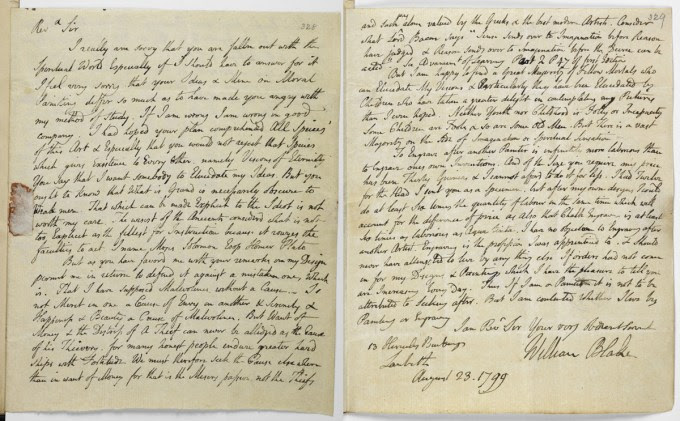 328
Revd Sir
I really am sorry that you are falln out with the
Spiritual World Especially if I should have to answer for it
I feel very sorry that your Ideas & Mine on Moral
Painting differ so much as to have made you angry with
my method of Study. If I am wrong I am wrong in good
company. I had hoped your plan comprehended All Species
of this Art & Especially that you would not reject that Species
which gives Existence to Every other. namely Visions of Eternity
You Say that I want somebody to Elucidate my Ideas. But you
ought to know that What is Grand is necessarily obscure to
Weak men. That which can be made Explicit to the Idiot is not
worth my care. The wisest of the Ancients considerd what is not
too Explicit as the fittest for Instruction because it rouzes the
faculties to act. I name Moses Solomon Esop Homer Plato
But as you have favord me with your remarks on my Design
permit me in return to defend it against a mistaken one, which
is. That I have supposed Malevolence without a Cause.— Is
not Merit in one a Cause of Envy in another & Serenity &
Happiness & Beauty a Cause of Malevolence. But Want of
Money & the Distress of A Thief can never be alledged as the Cause
of his Thieving. for many honest people endure greater hard
ships with Fortitude We must therefore seek the Cause elsewhere
than in want of Money for that is the Misers passion, not the Thiefs
329
and such alone valued by the Greeks & the best modern Artists. Consider
what Lord Bacon says "Sense sends over to Imagination before Reason
have judged & Reason sends over to Imagination before the Decree can be
acted." See Advancemt of Learning Part 2 P 47 of first Edition
But I am happy to find a Great Majority of Fellow Mortals who
can Elucidate My Visions & Particularly they have been Elucidated by
Children who have taken a greater delight in contemplating my Pictures
than I even hoped. Neither Youth nor Childhood is Folly or Incapacity
Some Children are Fools & so are some Old Men. But There is a vast
Majority on the side of Imagination or Spiritual Sensation
To Engrave after another Painter is infinitely more laborious than
to Engrave ones own Inventions. And of the Size you require my price
has been Thirty Guineas & I cannot afford to do it for less. I had Twelve
for the Head I sent you as a Specimen, but after my own designs I could
do at least Six times the quantity of labour in the same time which will
account for the difference of price as also that Chalk Engraving is at least
six times as laborious as Aqua tinta. I have no objection to Engraving after
another Artist. Engraving is the profession I was apprenticed to, & should
never have attempted to live by any thing else If orders had not come
in for my Designs & Paintings, which I have the pleasure to tell you
are Increasing Every Day. Thus If I am a Painter it is not to be
attributed to Seeking after. But I am contented whether I live by
Painting or Engraving
I am Revd Sir Your very Obedient Servant
William Blake
13 Hercules Buildings
Lambeth
August 23. 1799